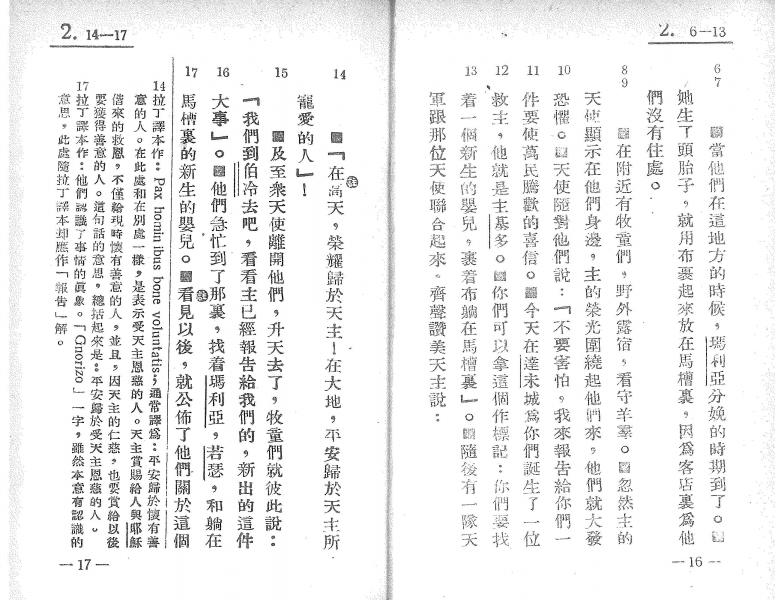 2. 6—13
6 7 當他們在這地方的時候，瑪利亞分娩的時期到了。
她生了頭胎子，就用布裹起來放在馬槽裏，因爲客店裏爲他
們沒有住處。
8 9 在附近有牧童們，野外露宿，看守羊羣。忽然主的
天使顯示在他們身邊，主的榮光圍繞起他們來，他們就大發
10 恐懼。天使隨對他們說：「不要害怕，我來報告給你們一
11 件要使萬民騰歡的喜信。今天在達未城爲你們誕生了一位
12 救主，他就是主基多。你們可以拿這個作標記：你們要找
13 着一個新生的嬰兒，裹着布躺在馬槽裏」。隨後有一隊天
軍跟那位天使聯合起來，齊聲讚美天主說：
—16—
2. 14—17
14 「在高天，榮耀歸於天主！在大地，平安歸於天主所
寵愛的人」！
15 及至衆天使離開他們，升天去了，牧童們就彼此說：
「我們到伯冷去吧，看看主已經報告給我們的，新出的這件
16 大事」。他們急忙到了那裏，找着瑪利亞，若瑟，和躺在
17 馬槽裏的新生的嬰兒。看見以後，就公佈了他們關於這個
14 拉丁譯本作：Pax hominibus bone voluntatis；通常譯爲：平安歸於懷有善
意的人。在此處和在別處一樣，是表示受天主恩慈的人。天主賞賜給人與耶穌
偕來的救恩，不僅給現時懷有善意的人，並且，因天主的仁慈，也要賞給以後
要獲得善意的人。這句話的意思，總括起來是：平安歸於受天主恩慈的人。
17 拉丁譯本作：他們認識了事情的眞象。「Gnorizo」一字，雖然本意有認識的
意思，此處隨拉丁譯本却應作「報告」解。
—17—